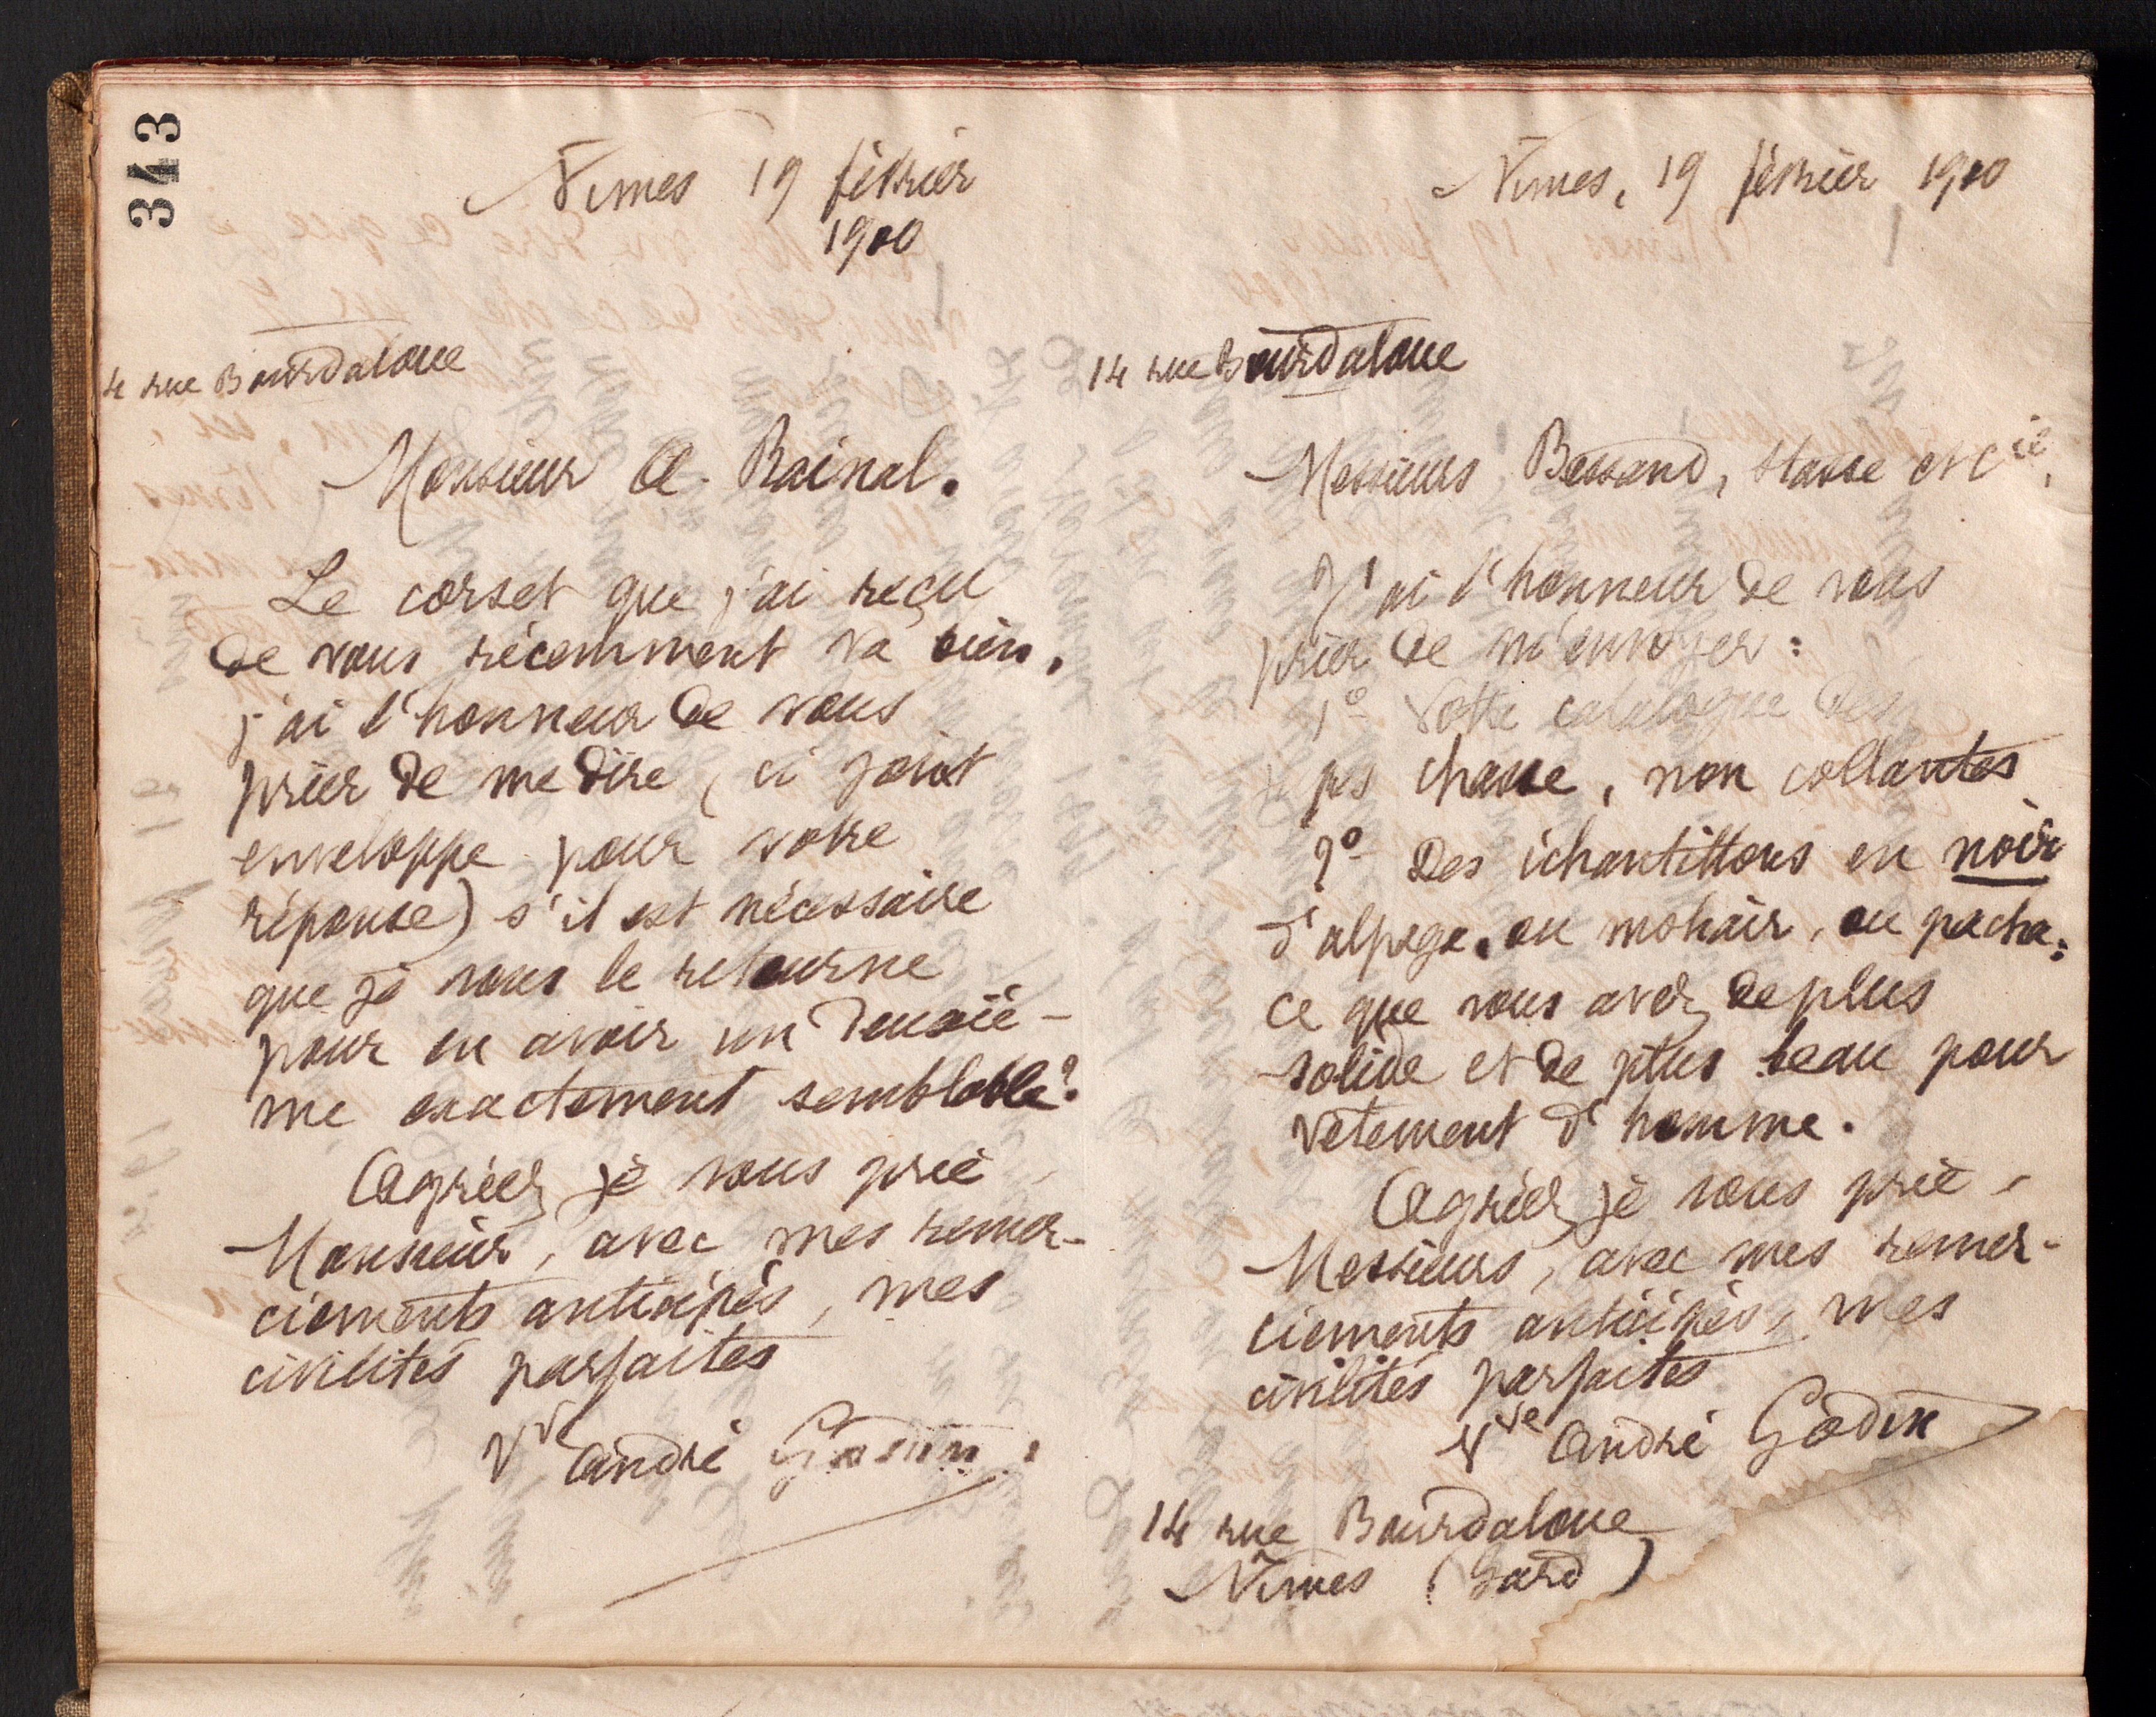 343
Nimes 19 février
1900
4 rue Bourdaloue
Monsieur A. Rainal.
Le corset que j'ai reçu
de vous récemment va bien.
j'ai l'honneur de vous
prier de me dire, (ci joint
enveloppe pour votre
réponse) s'il est nécessaire
que je vous le retourne
pour en avoir un deuxiè-
me exactement semblable?
Agréez je vous prie
Monsieur, avec mes remer-
ciements anticipés, mes
civilités parfaites
Vve André Godin.
Nimes, 19 février 1900
14 rue Bourdaloue
Messieurs Bessand, Stasse et Cie,
J'ai l'honneur de vous
prier de m'envoyer :
1° Votre catalogue des
chasse, non collantes
2° Des échantillons en noir
d'alpaga, ou mohair, ou pacha:
ce que vous avez de plus
solide et de plus beau pour
vêtement d'homme.
Agréez je vous prie,
Messieurs, avec mes remer-
ciements anticipés, mes
civilités parfaites
Vve André Godin
14 rue Bourdaloue
Nîmes (Gard)